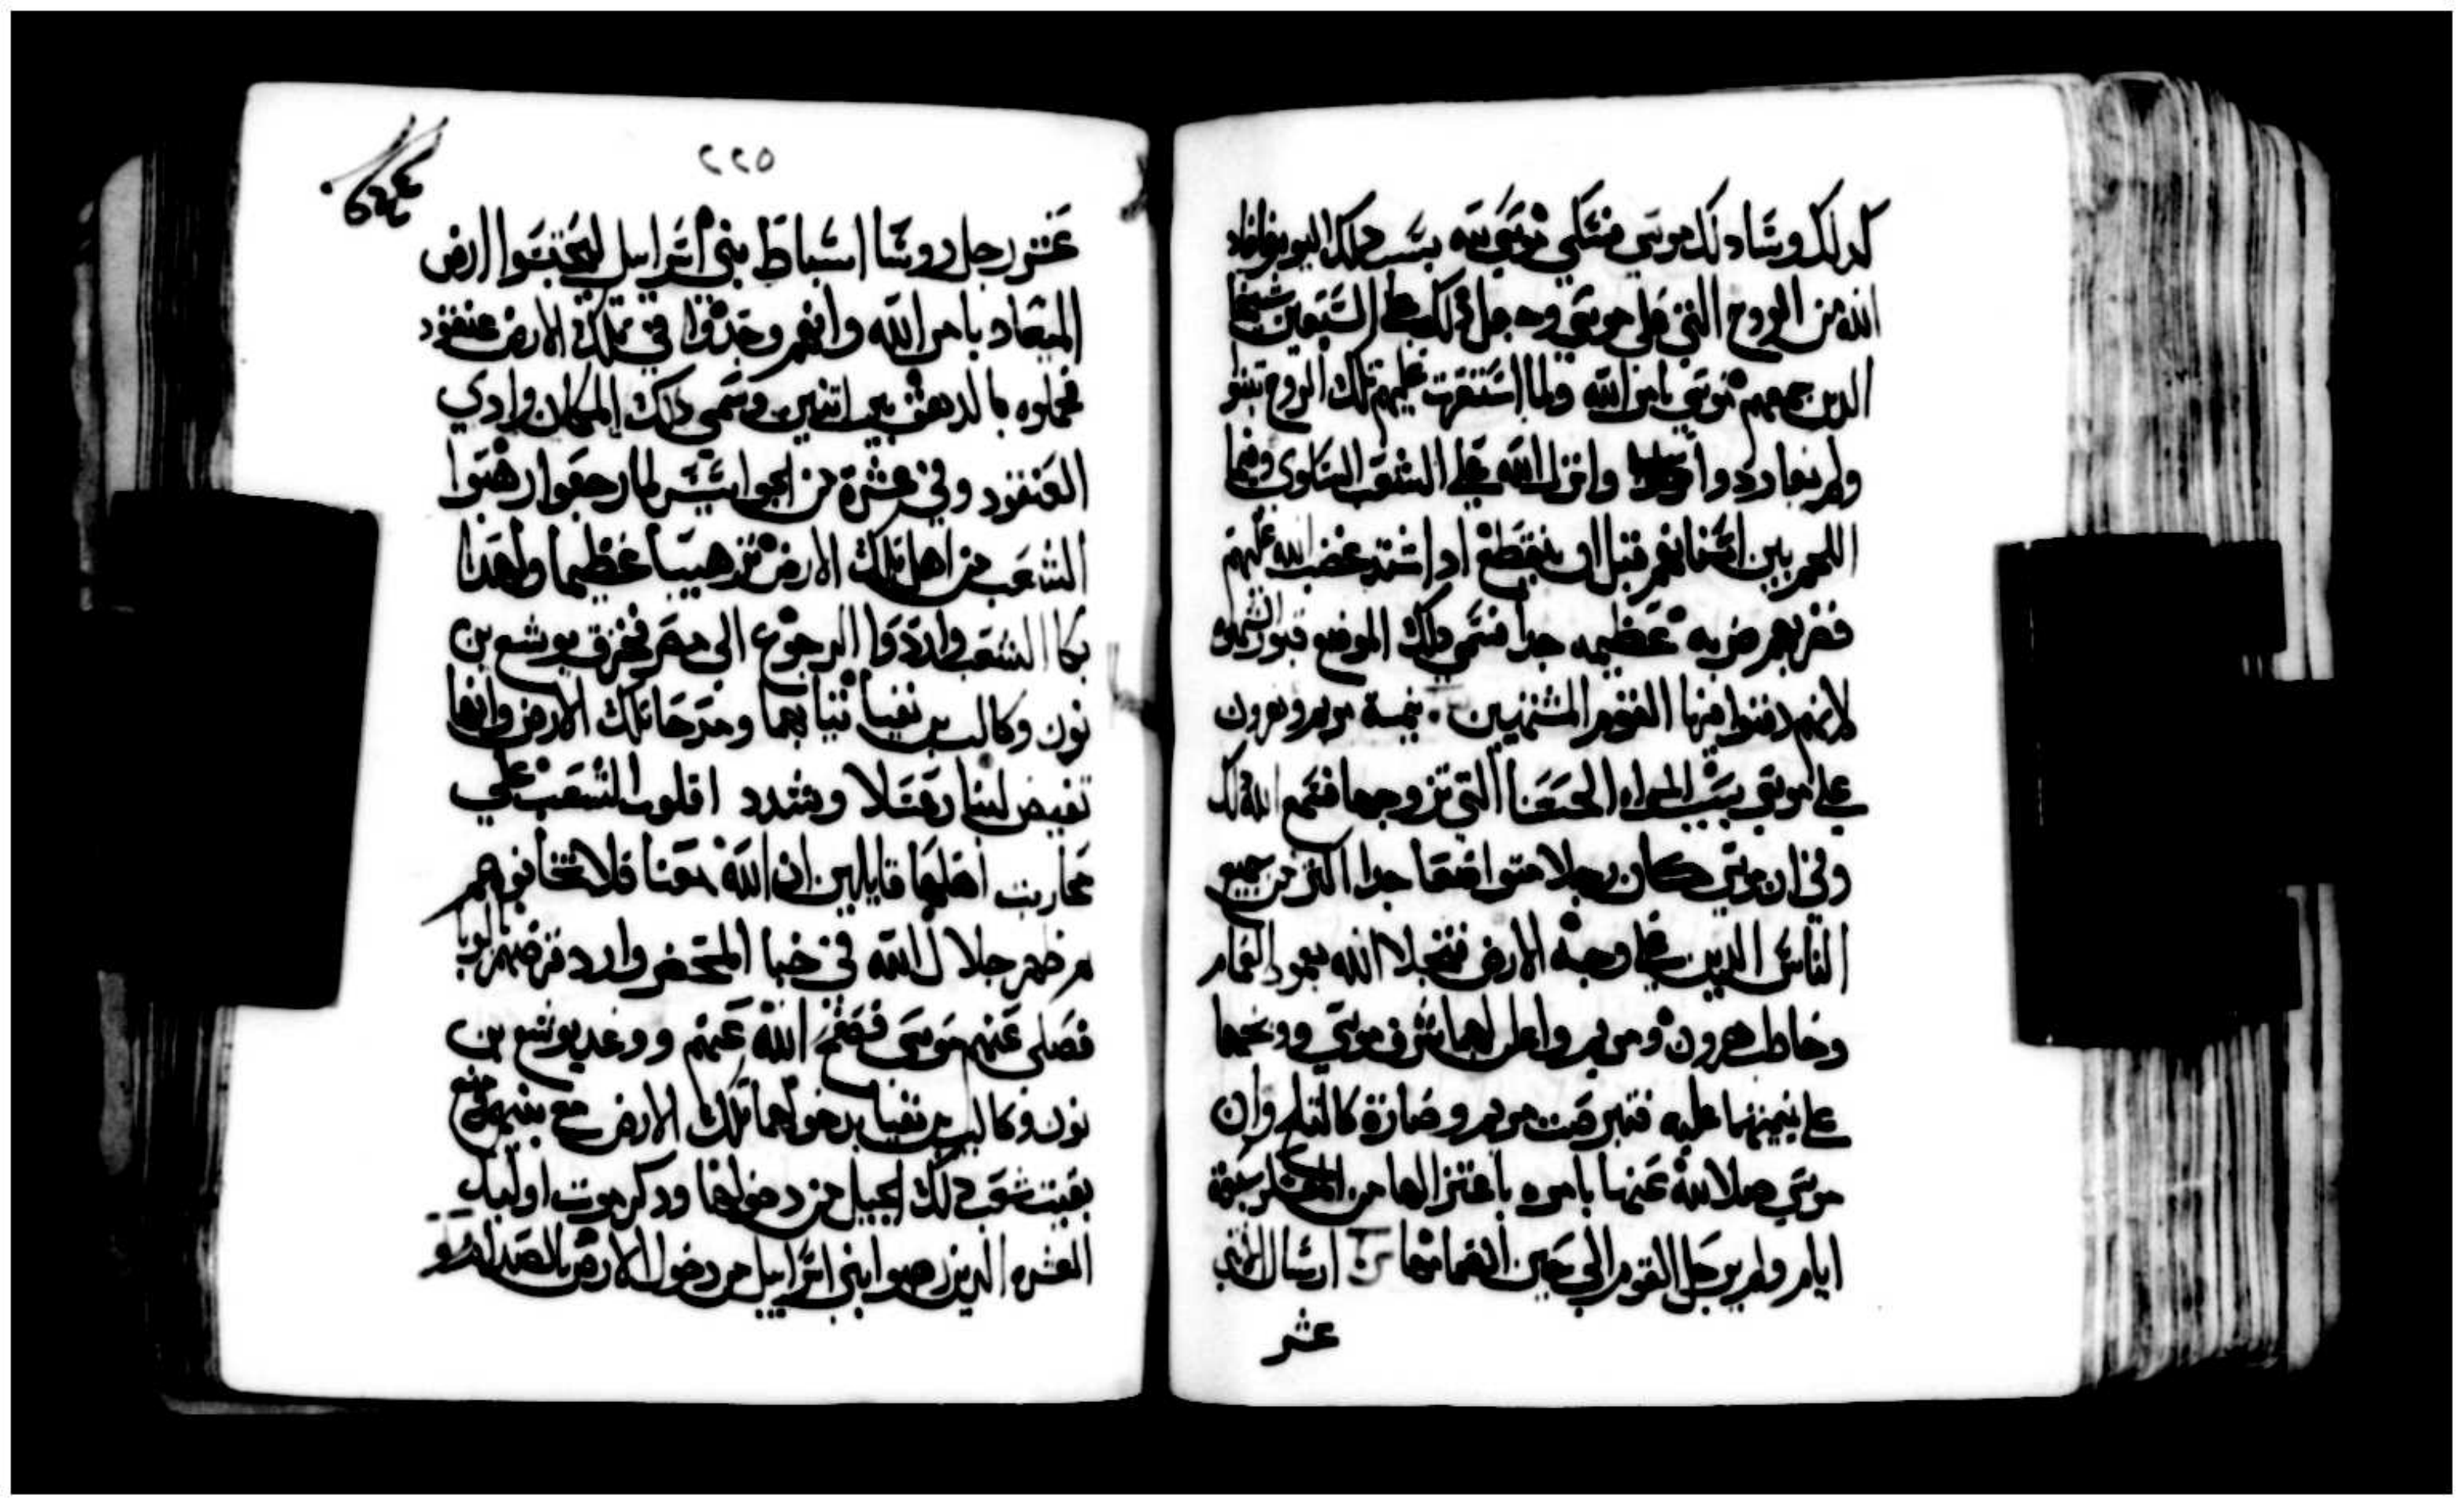 كدلك وساد لك موسي فشكي موسي
الله من الروح التي علي موسي وجعل دلك علي السبعين شيخا
الدين جمعهم موسي بامر الله ولما استقرت عليهم تلك الروح تنبوا
ولم يعاودوا وانزل الله علي الشعب السلوى وفيما
اللحم بين اسنانهم قبل ان ينقطع اد اشتد غضب الله عليهم
فضربهم ضربه عظيمه جدا فسمي دلك الموضع قبور الشهوه
لانهم دفنوا فيها القوم المشتهيين نميمة مريم وهرون
علي موسي بسبب المراه الحبشا التي تزوجها فسمع الله دلك
وفي ان موسي كان رجلا متواضعا جدا اكتر من جميع
الناس الدين علي وجه الارض فتجلا الله بعمود الغمام
وخاطب هرون ومريم واعلن لهما شرف موسي ووبخهما
علي نميمتهما عليه فتبرصت مريم وصارة كالتلج وان
موسي صلا لله عنها بامره باعتزالها من المعسكر سبعة
ايام ولم يرحل القوم الي حين انضمامها ارسال الاتني
عشر
٢٢٥
عشر رجل روسا اسباط بني اسراييل ليجتسوا ارض
الميعاد بامر الله وانهم وجدوا في تلك الارض عنقود
فحملوه بالدهق بين اتنين وسمي دلك المكان وادي
العنقود وفي عشرة من الجواسيس لما رجعوا رهبوا
الشعب من اهل تلك الارض ترهيبا عظيما ولهدا
بكا الشعب وارادوا الرجوع الي مصر فخرق يوشع بن
نون وكالب بن يفنيا تيابهما ومدحا تلك الارض وانها
تفيض لبنا وعسلا وشدد اقلوب الشعب علي
محاربت اهلها قايلين ان الله معنا فلا تخافوهم
تم ظهر جلال الله في خبا المحضر واراد ضربهم بالوبا
فصلي عنهم موسي فصفح الله عنهم ووعد يوشع بن
نون وكالب بن يفنيا بدخولهما تلك الارض مع بنيهم ومنع
بقيت شعب دلك الجيل من دخولها ودكر موت اوليك
العشره الدين رهبوا بني اسراييل من دخول الارض